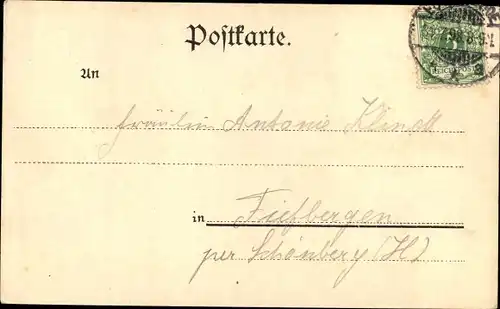 Postkarte.
An
Fräulein Antonie Klindt
in Fiefbergen
per Schönberg (H)
REICHSPOST